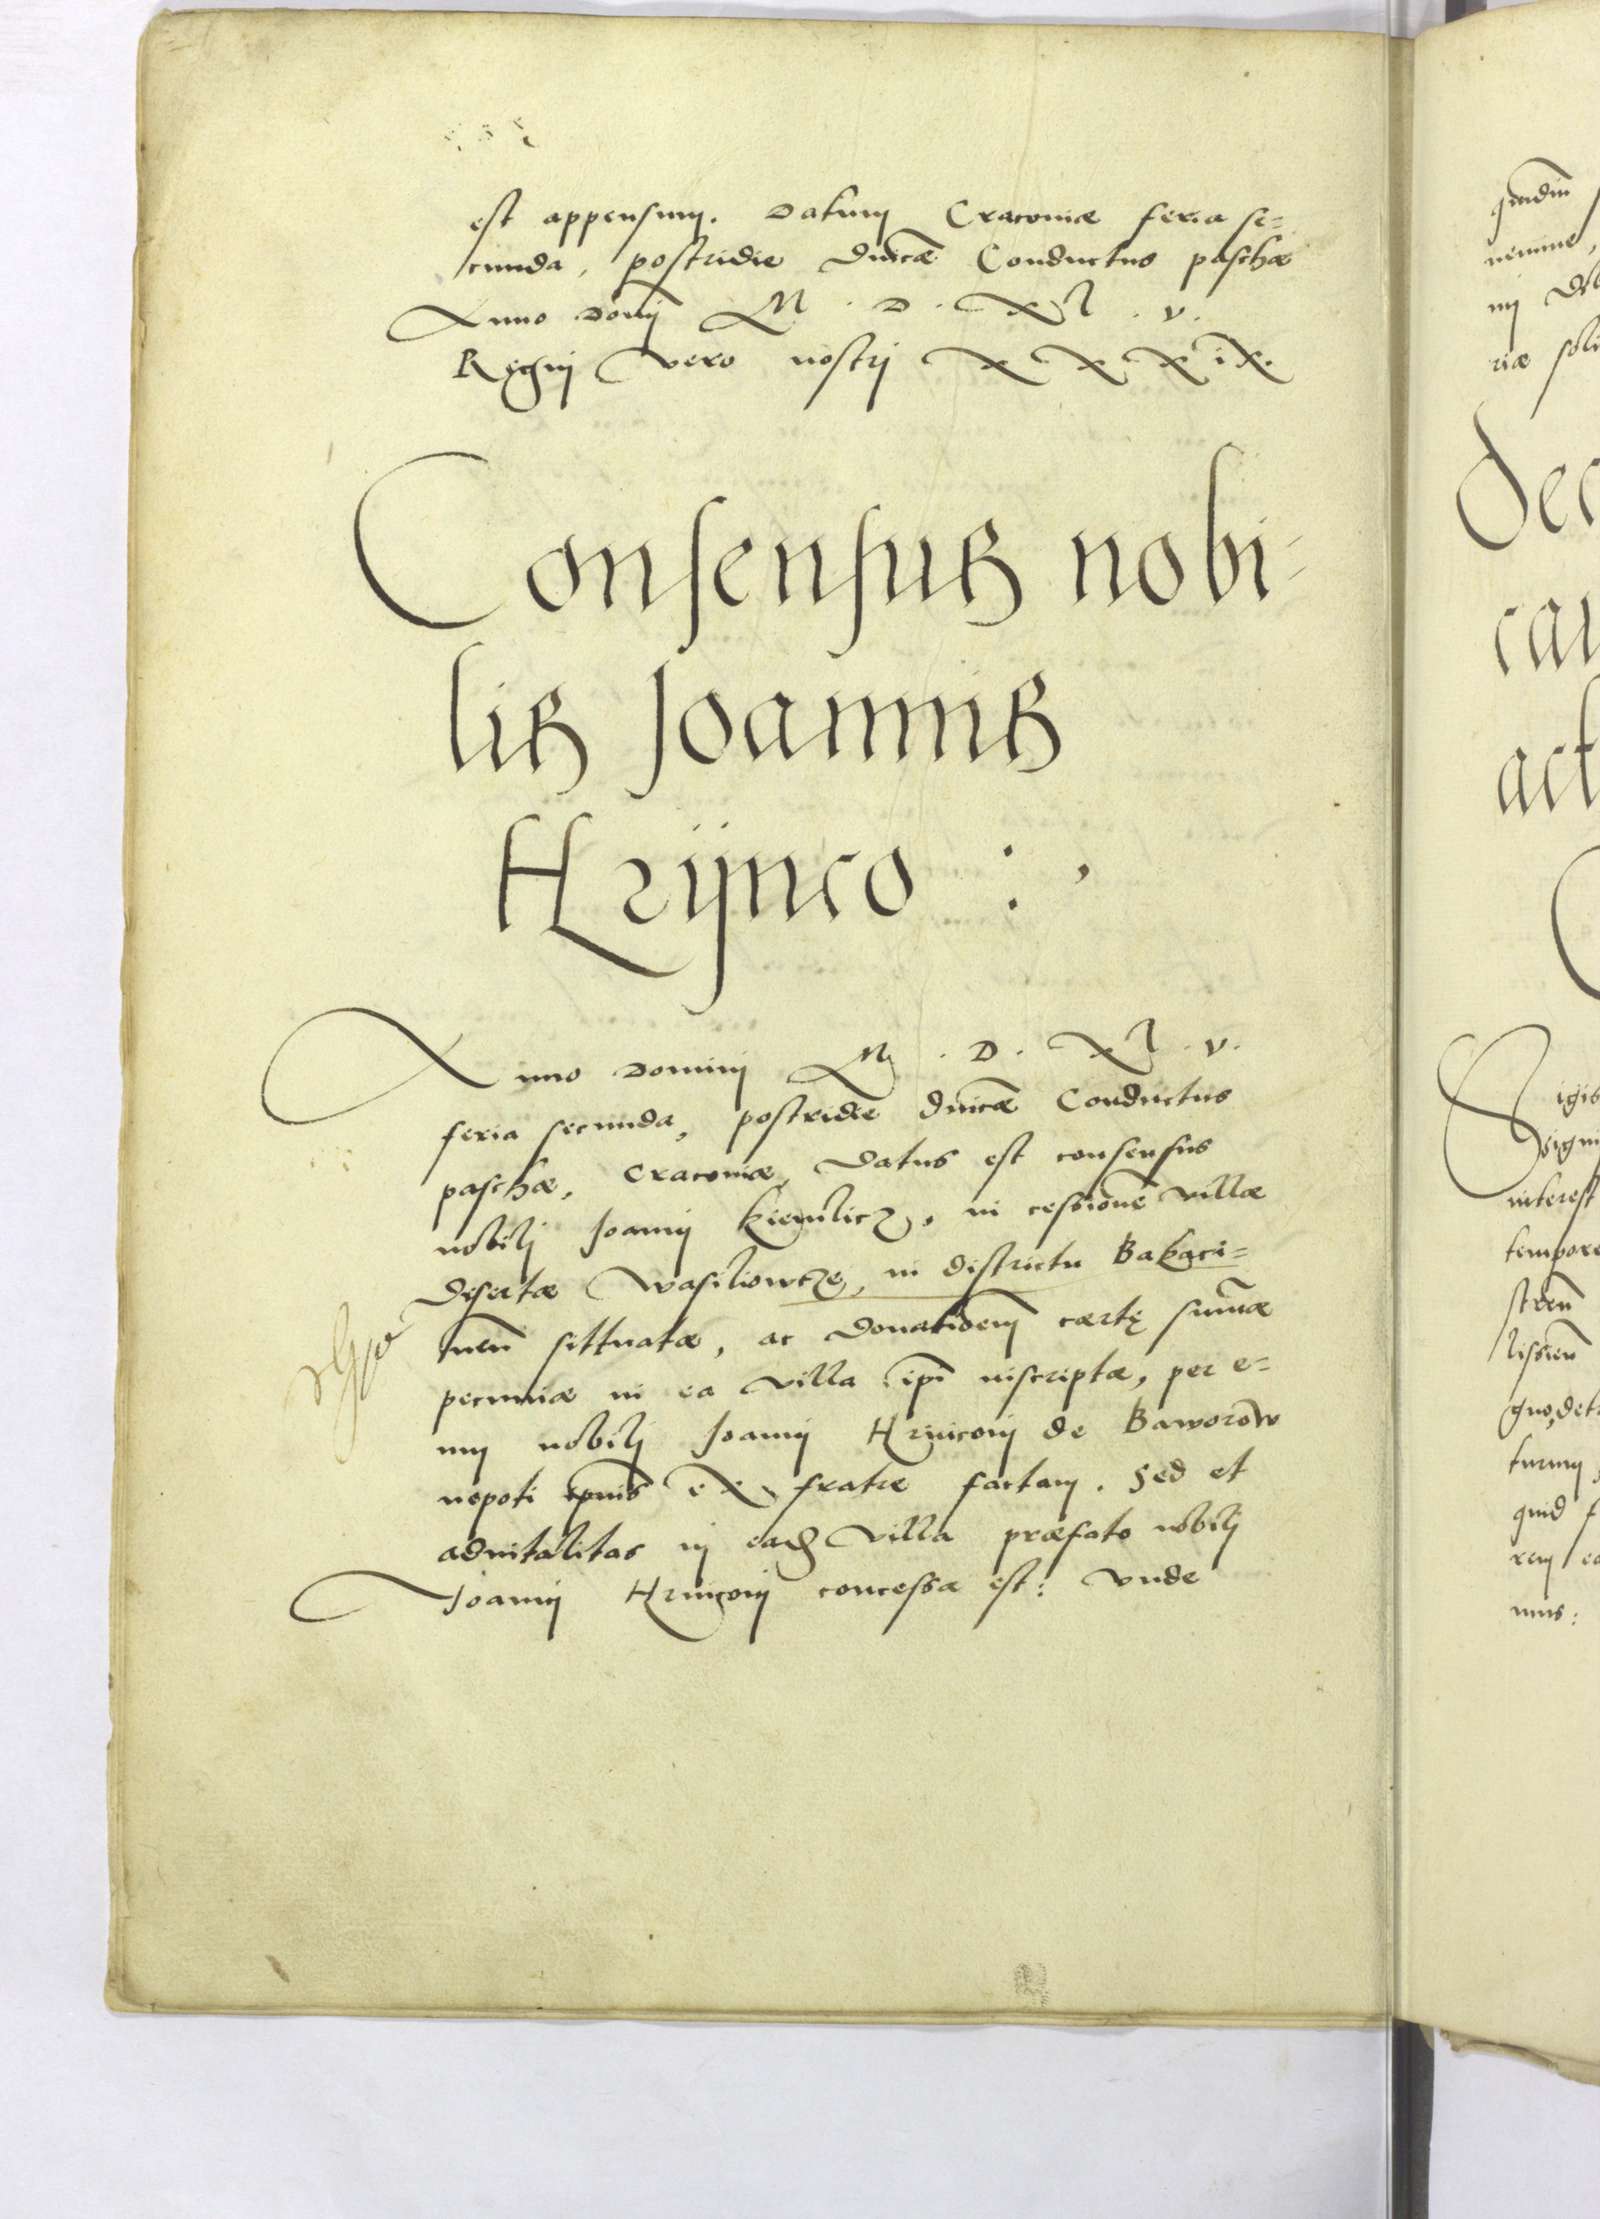 est appensum. Datum Cracoviæ feria se=
cunda, postridie Dnicæ Conductus paschæ
Anno Domĩ M . D . XL . V .
Regni vero nostri XXXIX.
Consensus nobi-
lis Joannis
Hrijnco :,
Anno Domini M . D . XL . V .
feria secunda, postridie Dnicæ Conductus
paschæ, Cracoviæ, Datus est consensus
nobili Joanni Kiemlicz, in cessionẽ villæ
desertæ Wasiliowcze, in districtu Bakaci=
nen̄ sittuatæ, ac Donationem cærtę sum̃æ
pecuniæ in ea villa ip̄i inscriptæ, per e=
um nobili Joanni Hrinconi de Baworow
nepoti ip̄ius ex fratre factam. Sed et
advitalitas in eadẽ villa præfato nobili
Joanni Hrinconi concessa est: Vnde
quamdiu
nemine,
riæ soli
dec
cau
act
igis
interest
tempore
lissien̄
quo, det
turum
quid f
rem ea
mus: